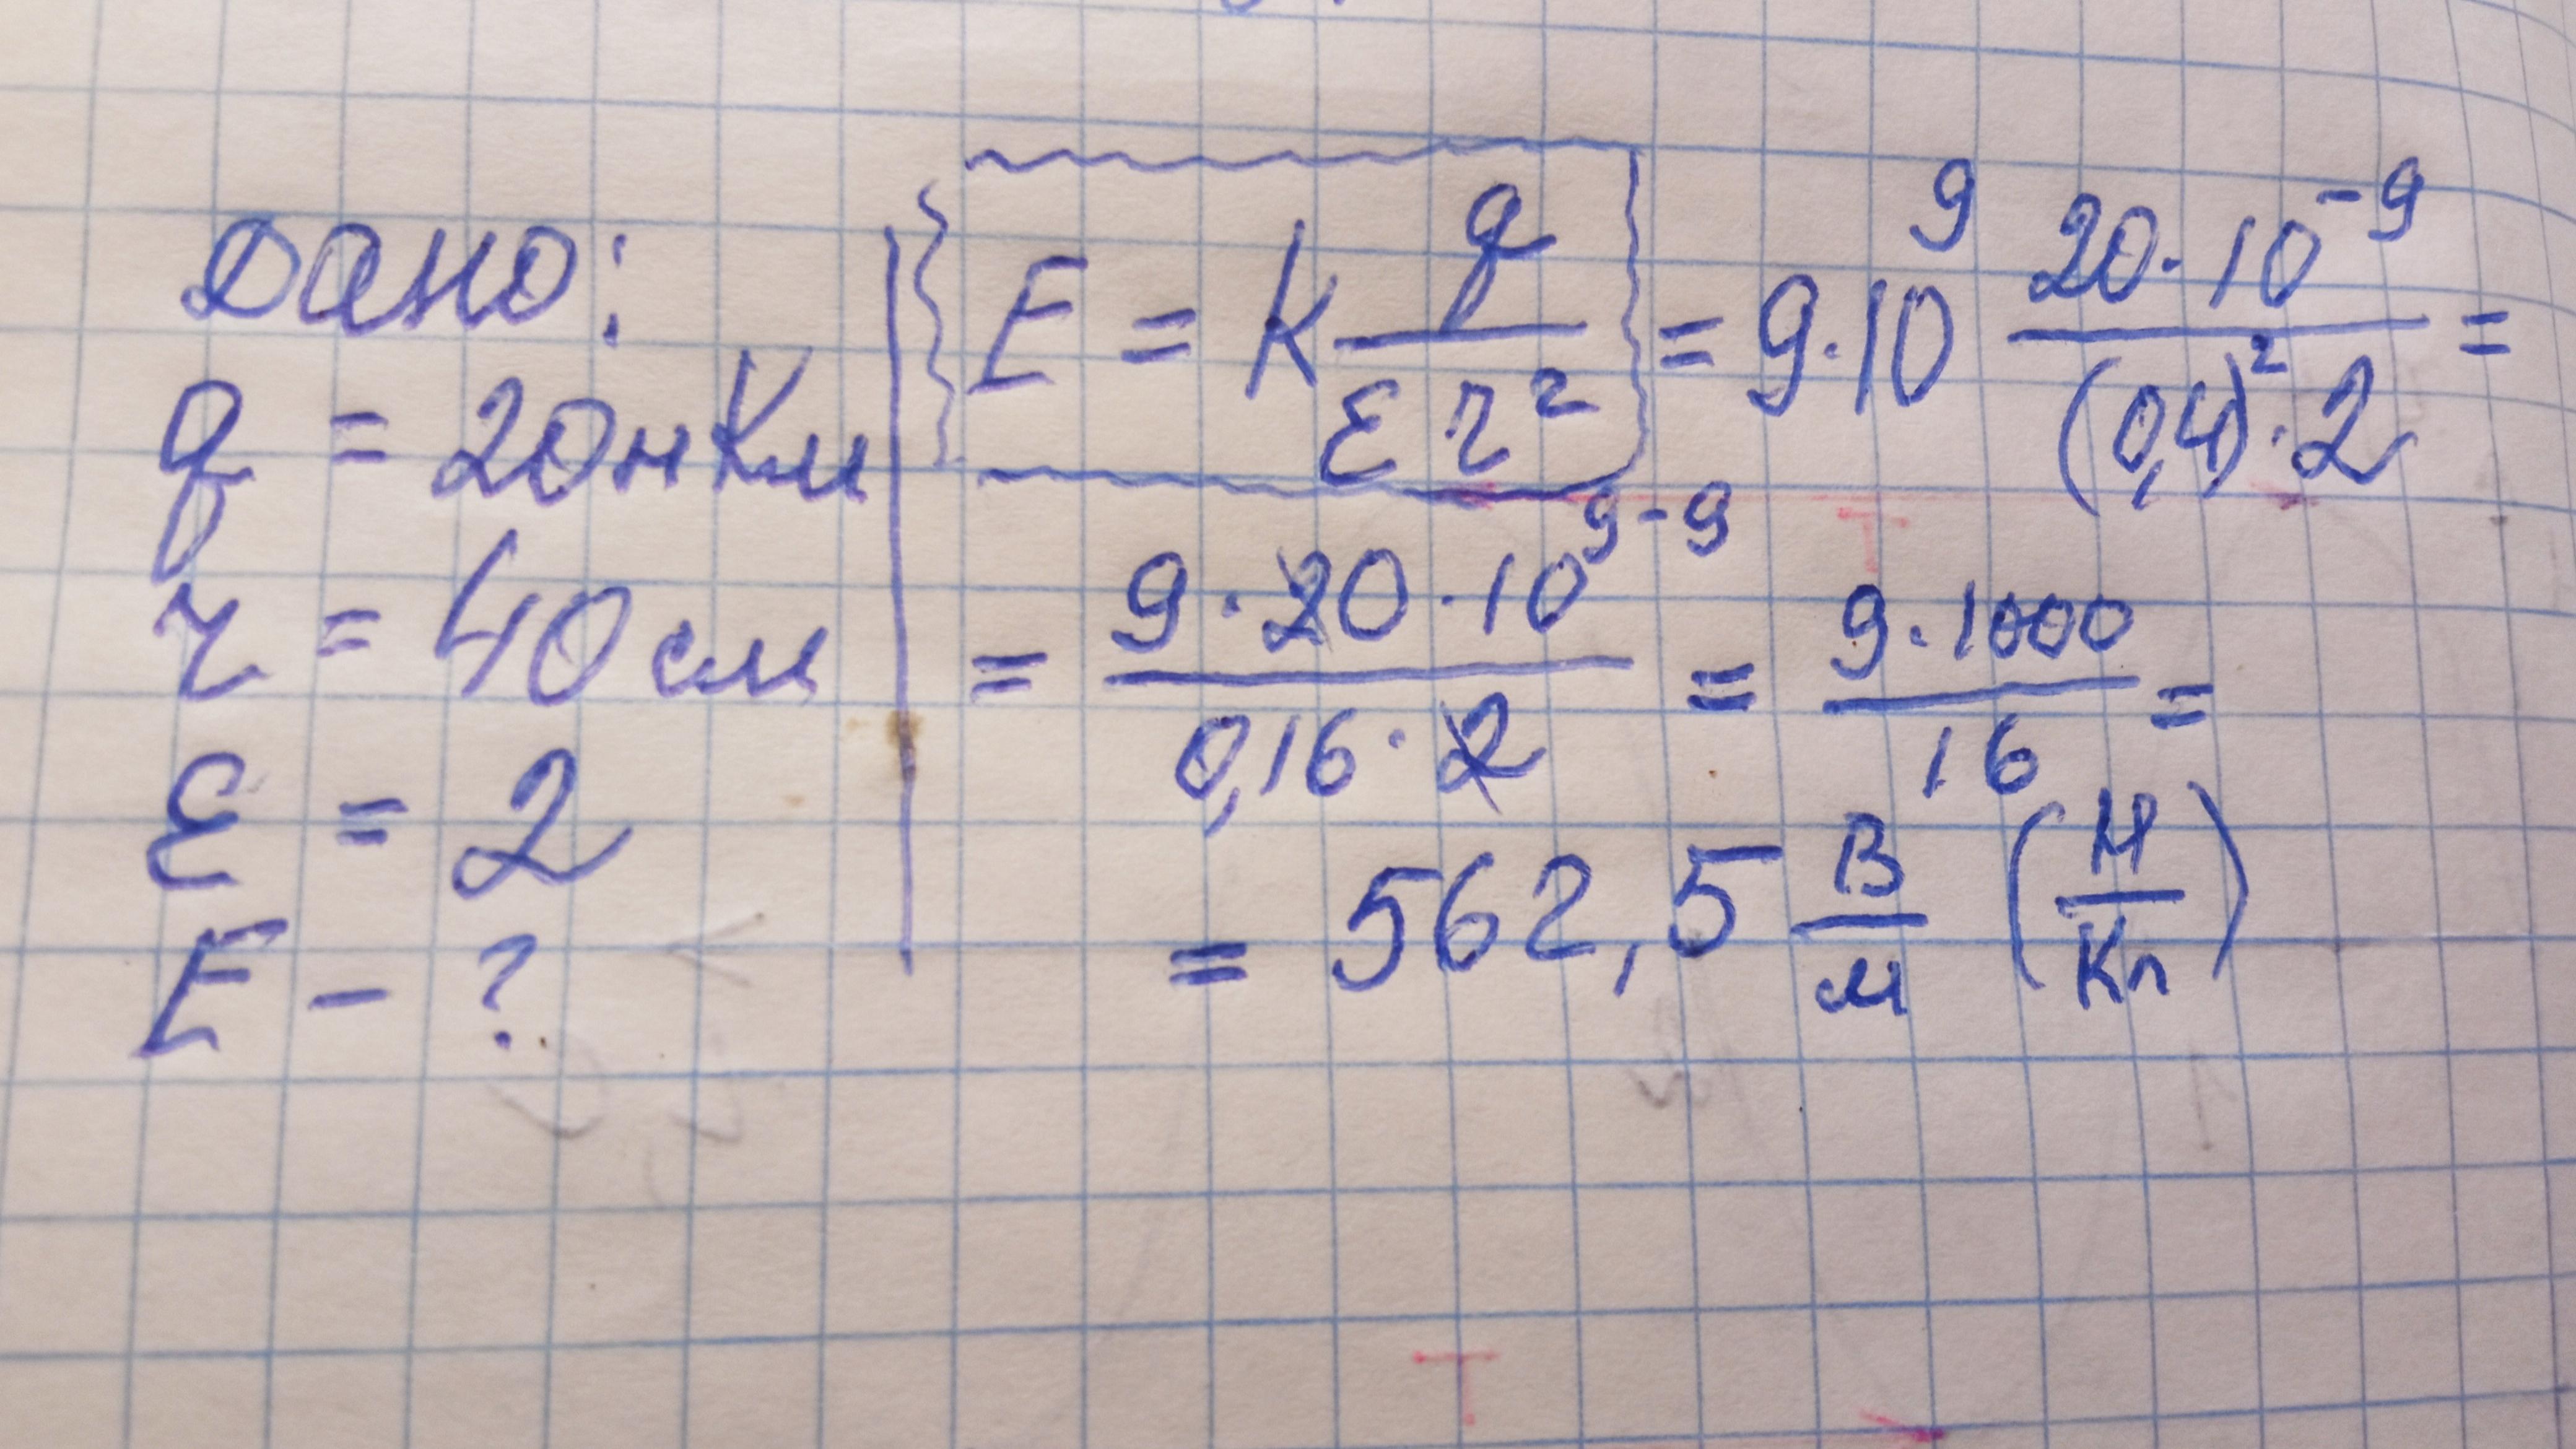 Дано:
q = 20нКл
r = 40 см
ε = 2
E - ?
E = k q/εr² = 9·10⁹ 20·10⁻⁹/(0,4)²·2 =
= 9·20·10⁹⁻⁹/0,16·2 = 9·1000/16 =
= 562,5 В/м (Н/Кл)
T
T